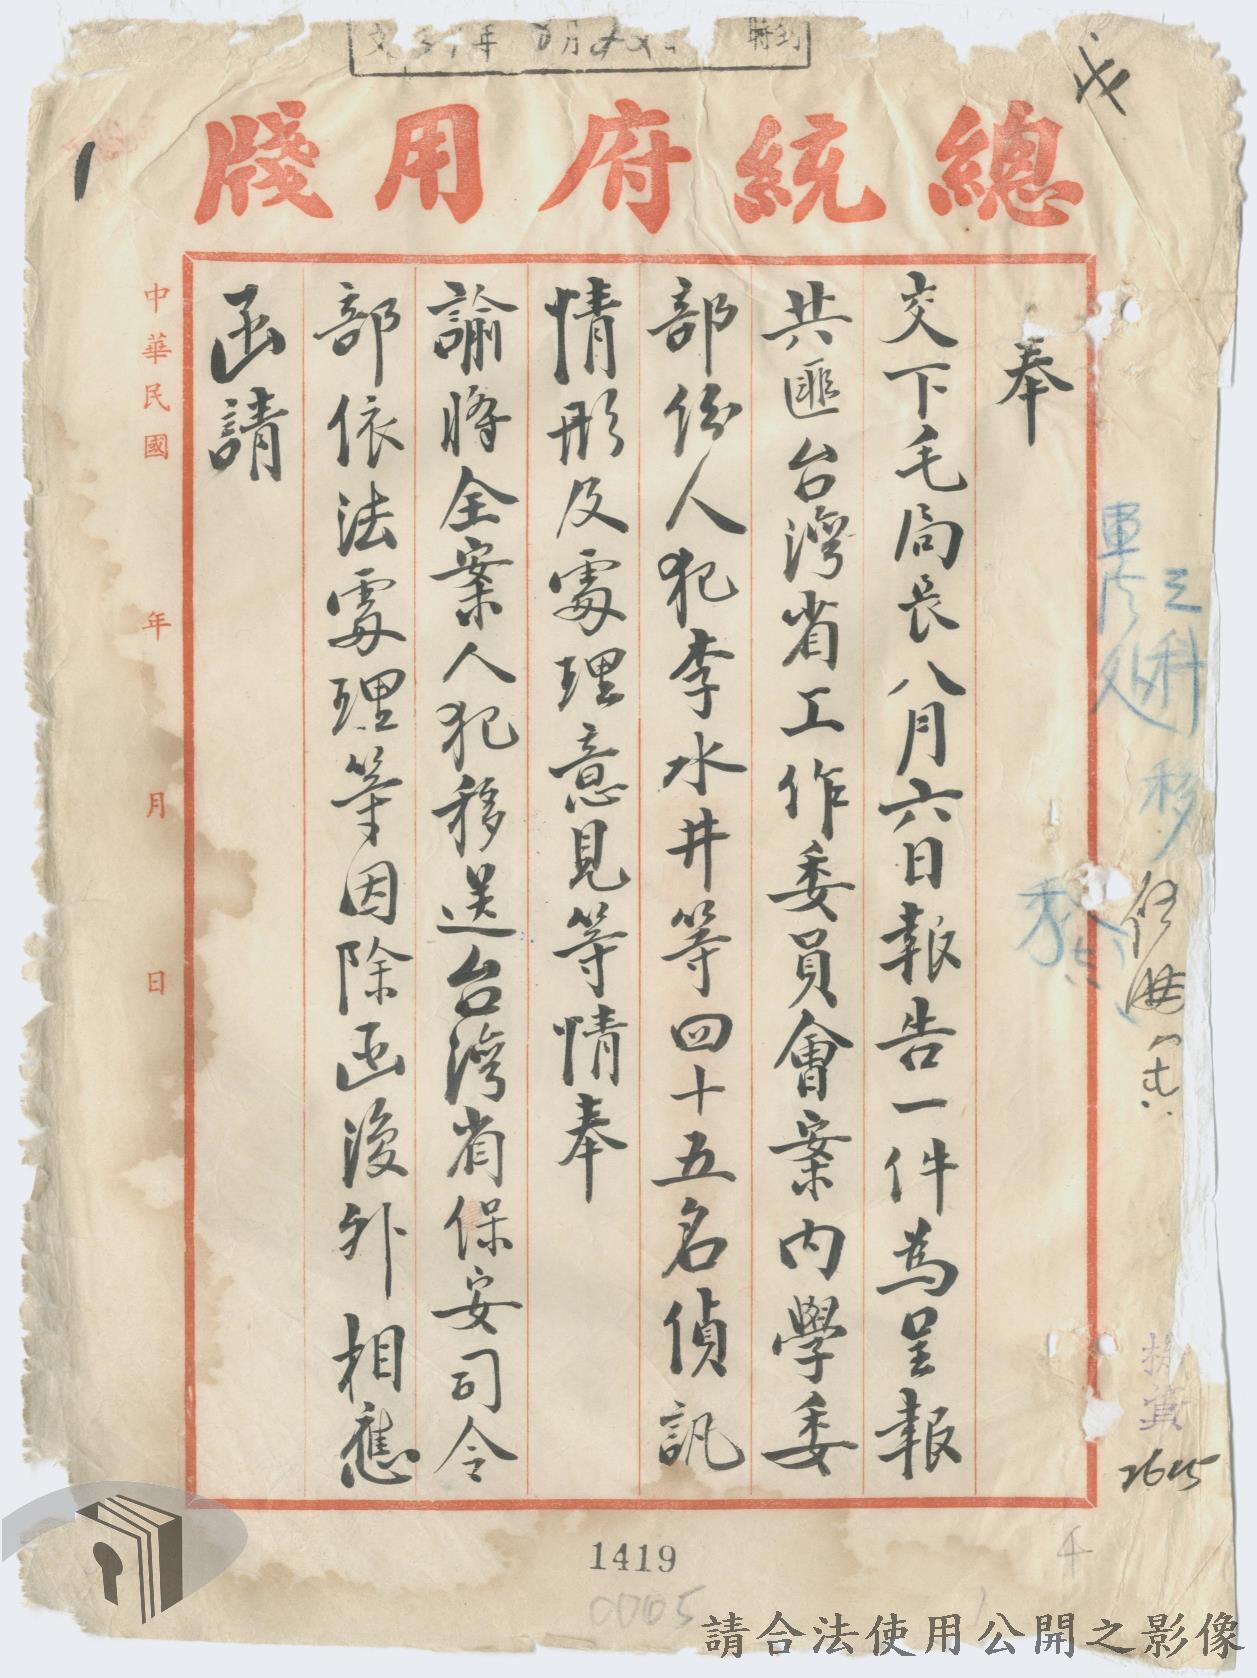 年 月 時到
總統府用牋
奉
交下毛局長八月六日報告一件為呈報
共匪台灣省工作委員會案內學委
部份人犯李水井等四十五名偵訊
情形及處理意見等情奉
諭將全案人犯移送台灣省保安司令
部依法處理等因除函復外相應
函請
中華民國 年 月 日
三科
移
1
2645
1419
0005
請合法使用公開之影像